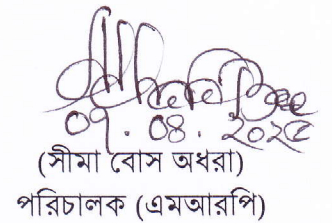 ০৭.০৪.২০২৫
(সীমা বোস অধরা)
পরিচালক (এমআরপি)